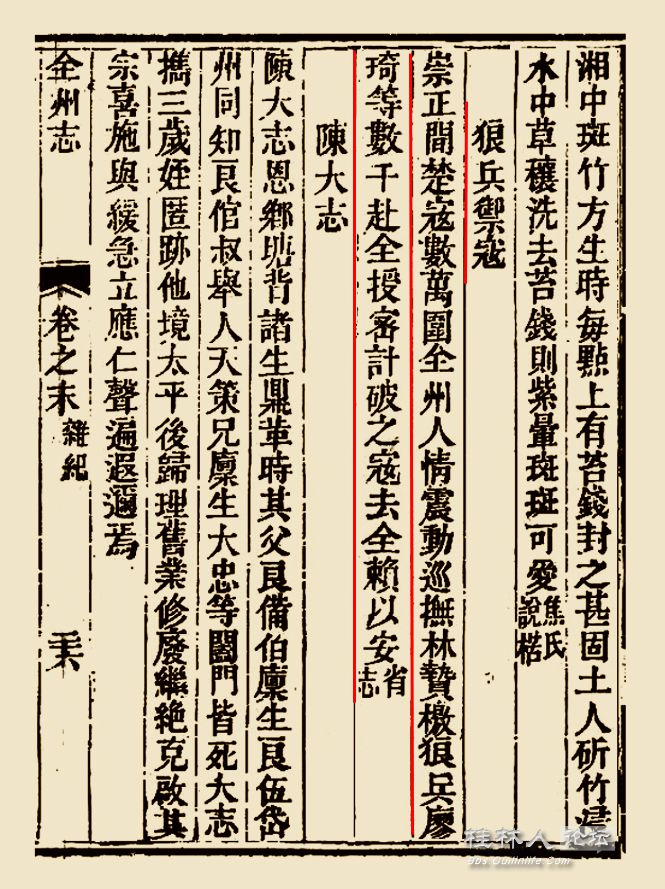 湘中斑竹方生時每㸃上有苔錢封之甚固土人斫竹浸
水中草穰洗去苔錢則紫暈斑斑可愛焦氏說楛
狼兵禦寇
崇正間楚寇數萬圍全州人情震動巡撫林贄檄狼兵廖
琦等數千赴全授密計破之寇去全賴以安省志
陳大志
陳大志恩鄉塘背諸生鼎革時其父良備伯廩生良伍岱
州同知良倌叔舉人天策兄廩生大忠等闔門皆死大志
攜三歲姪匿跡他境太平後歸理舊業修廢繼絶克啟其
宗喜施與緩急立應仁聲遍遐邇焉
全州志 卷之末 雜紀
桂林人论坛
bbs.Guilinlife.Com